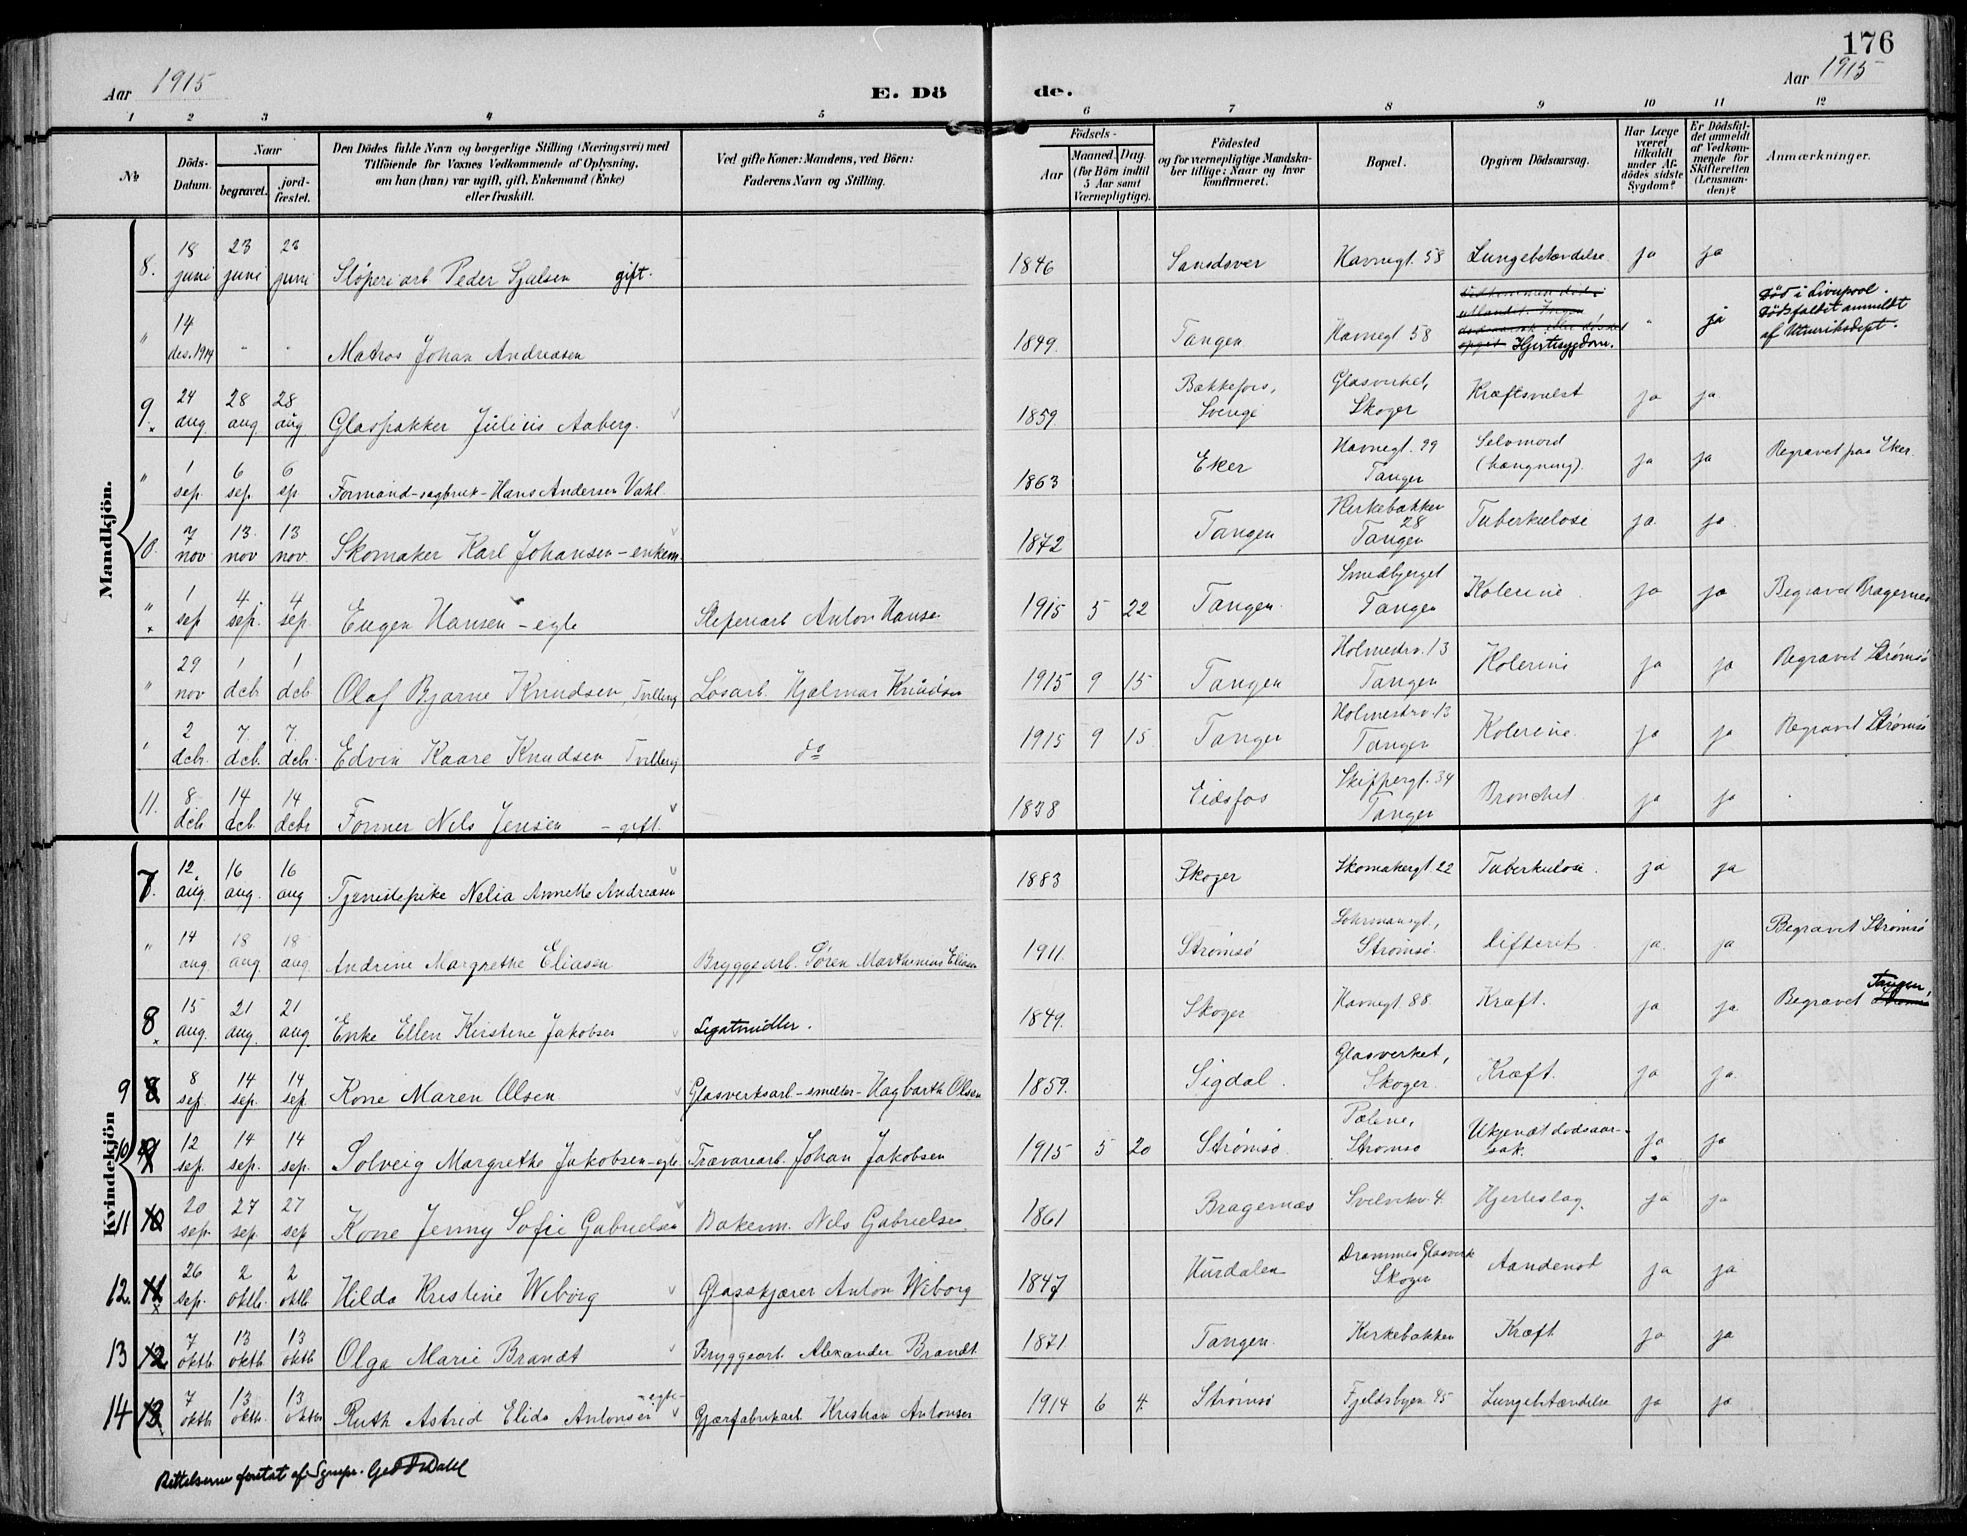 176
Aar 1915
E. Dö
de.
Aar 1915
1 2 3 4 5 6 7 8 9 10 11 12
No
Döds-Datum.
Naar
begravet.
jord-fæstet.
Den Dödes fulde Navn og borgerlige Stilling (Næringsvei) med
Tilföiende for Voxnes Vedkommende af Oplysning,
om han (hun) var ugift, gift, Enkemand (Enke)
eller fraskilt.
Ved gifte Koner: Mandens, ved Börn:
Faderens Navn og Stilling.
Födsels-
Aar
Maaned. Dag.
(for Börn indtil
5 Aar samt
Værnepligtige).
Födested
og for værnepligtige Mandska-
ber tillige: Naar og hvor
konfirmeret.
Bopæl.
Opgiven Dödsaarsag.
Har Læge
været
tilkaldt
under Af-
dödes sidste
Sygdom?
Er Dödsfal-
det anmeldt
af Vedkom-
mende for
Skifteretten
(Lensman-
den)?
Anmærkninger.
Mandkjön.
8. 18 juni 23 juni 23 juni Støperiarb. Peder Gjulsen gift. 1846 Sandsver Havnegt. 58 Lungebetændelse. ja ja
" 14 des. 1914 " " Matros Johan Andreasen 1849. Tangen Havnegt 58 Hjertesygdom. " ja Død i Liverpool. Dødsfaldet anmeldt af Utenriksdept.
9. 24 aug. 28 aug 28 aug Glaspakker Julius Aaberg. 1859 Bækkefors, Sverige Glasverket, Skoger Kræftsvulst ja ja
" 1 sep. 6 sep. 6 sep Formand - sagbruk - Hans Andersen Vahl 1863 Eker Havnegt. 99 Tangen Selvmord (hængning). ja ja Begravet paa Eker.
10. 7 nov 13. nov 13 nov. Skomaker Karl Johansen - enkem. 1872 Tangen Kirkebakken 28 Tangen Tuberkulose ja ja.
" 1 sep 4 sep. 4 sep. Eugen Hansen - egte Støperiarb Anton Hansen 1915 5 22 Tangen. Smedbjerget Tangen Kolerine ja ja Begravet Bragernes
" 29 nov 1 dcb. 1 dcb. Olaf Bjarne Knudsen, Tvilling Løsarb. Hjalmar Knudsen 1915 9 15 Tangen Holmestrv. 13 Tangen Kolerine ja ja Begravet Strømsø
" 2 dcbr. 7. dcb. 7. dcbr. Edvin Kaare Knudsen Tvilling do 1915 9 15 Tangen Holmestrv. 13 Tangen Kolerine. ja ja Begravet Strømsø
11. 8 dcb. 14 dcb. 14 dcbr Former Nils Jensen - gift. 1838 Eidsfos Skippergt. 34 Tangen Bronchit. ja ja
Kvindekjön
7. 12. aug. 16 aug. 16 aug Tjenestepike Nelia Annette Andreasen 1883 Skoger Skomakergt 22 Tuberkulose. ja ja
" 14 aug. 18 aug. 18 aug. Andrine Margrethe Eliasen Bryggearb. Søren Marthinius Eliasen 1911. Strømsø Lohrmansgt., Strømsø. Difterit ja. ja Begravet Strømsø
8 15 aug. 21 aug. 21 aug. Enke Ellen Kirstine Jakobsen Legatmidler. 1849. Skoger Havnegt 88. Kræft. ja ja. Begravet Tangen, Strømsø
9 8 8 sep. 14 sep. 14 sep Kone Maren Olsen Glasverksarb - smelter - Hagbarth Olsen 1859. Sigdal. Glasverket, Skoger. Kræft. ja ja.
10 9 12 sep. 14 sep. 14 sep. Solveig Margrethe Jakobsen - egte Trævarearb. Johan Jakobsen 1915 5 20 Strømsø Pælene, Strømsø Ukjendt dødsaarsak. ja. ja
11 10 20 sep. 27 sep. 27 sep Kone Jenny Sofie Gabrielsen Bakerm. Nils Gabrielsen. 1861 Bragernæs Svelvikv. 4. Hjerteslag. ja ja
12. 11 26 sep. 2 oktb. 2 oktb Hilda Kristine Wiborg Glasskjærer Anton Wiborg 1847 Hurdalen Drammens Glasverk Skoger Aandenød ja ja
13 12 7 oktb. 13 oktb 13 oktb Olga Marie Brandt Bryggearb. Alexander Brandt 1871. Tangen. Kirkebakken Kræft ja ja
14 13 7 oktb 13 oktb. 13 oktbr Ruth Astrid Elida Antonsen - egte - Gjærfabrikarb Kristian Antonsen 1914 6 4 Strømsø Fjeldsbyen 45 Lungebetændelse ja ja
Rettelserne foretat af Sgnepr.